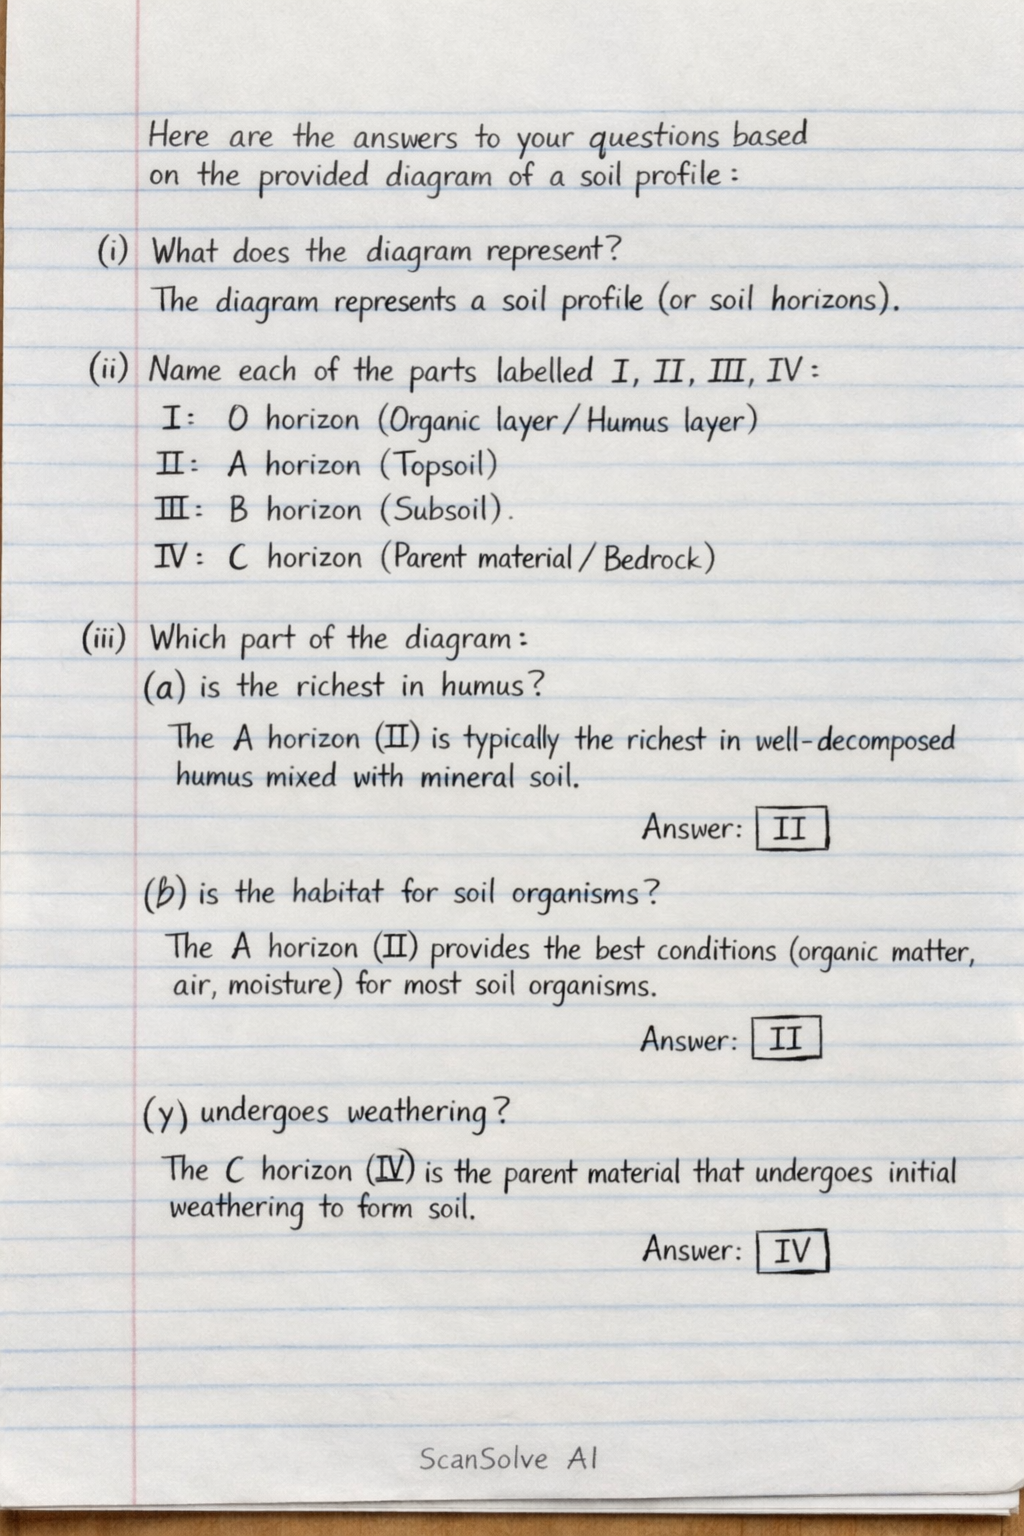 Here are the answers to your questions based
on the provided diagram of a soil profile:
(i) What does the diagram represent?
The diagram represents a soil profile (or soil horizons).
(ii) Name each of the parts labelled I, II, III, IV:
I: O horizon (Organic layer / Humus layer)
II: A horizon (Topsoil)
III: B horizon (Subsoil).
IV: C horizon (Parent material / Bedrock)
(iii) Which part of the diagram:
(a) is the richest in humus?
The A horizon (II) is typically the richest in well-decomposed
humus mixed with mineral soil.
Answer: II
(b) is the habitat for soil organisms?
The A horizon (II) provides the best conditions (organic matter,
air, moisture) for most soil organisms.
Answer: II
(y) undergoes weathering?
The C horizon (IV) is the parent material that undergoes initial
weathering to form soil.
Answer: IV
ScanSolve AI